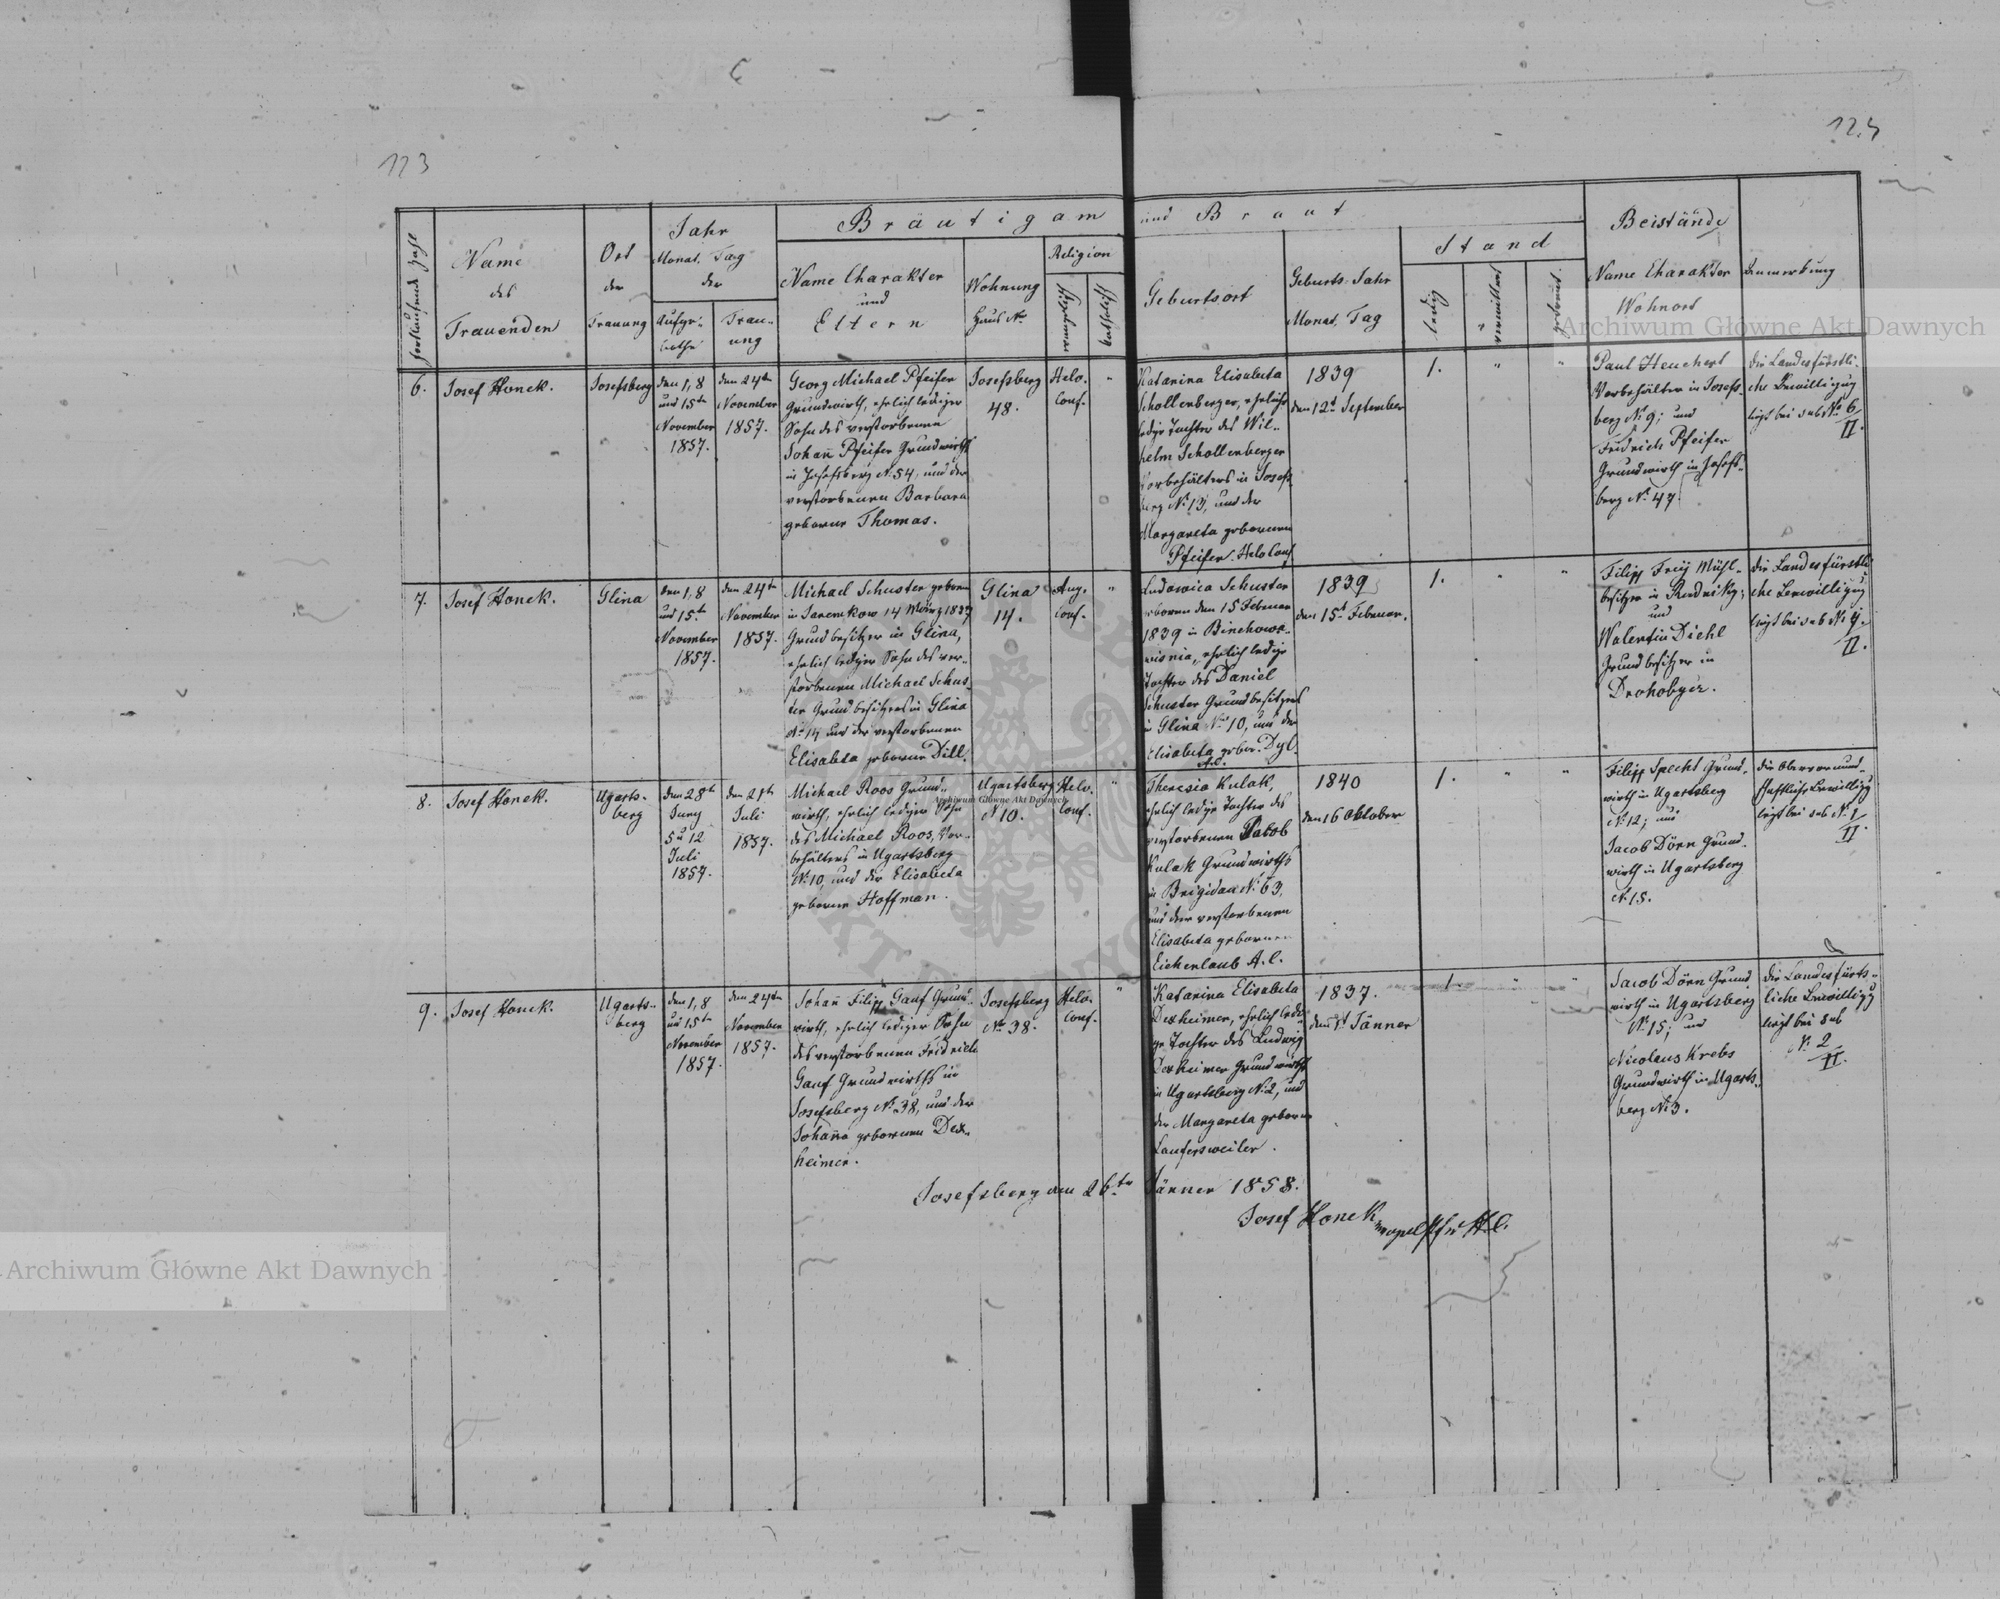 123
124
Bräutigam und Braut
fortlaufende Zahl
Name
des
Trauenden
Ort
der
Trauung
Jahr
Monat, Tag
der
Aufge-
bothe
Trau-
ung
Name Charakter
und
Eltern
Wohnung
Haus No
Religion
katholisch
Geburtsort
Geburts-Jahr
Monat, Tag
Stand
ledig
verwittwet
getrennt
Beistände
Name Charakter
Wohnort
Anmerkung
6.
Josef Honek.
Josefsberg
den 1, 8
und 15ten
November
1857.
den 24ten
November
1857.
Georg Michael Pfeifer
Grundwirth, ehelich lediger
Sohn des verstorbenen
Johan̄ Pfeifer Grundwirths
in Josefsberg N. 54, und der
verstorbenen Barbara
geborne Thomas.
Josefsberg
48.
Helv.
Conf.
"
Katarina Elisabeta
Schollenberger, eheliche
ledige Tochter des Wil-
helm Schollenberger
Vorbehälters in Josefs-
berg No 13, und der
Margareta gebornen
Pfeifer. Helv Conf.
1839
den 12t September
1.
"
"
Paul Heuchert
Vorbehälter in Josefs-
berg No 9; und
Fridrich Pfeifer
Grundwirth in Josefs-
berg No 47.
die Landesfürstli-
che Bewilligung
liegt bei sub No 6/II.
7.
Josef Honek.
Glina
den 1, 8
und 15ten
November
1857.
den 24ten
November
1857.
Michael Schuster geboren
in Jaremkow 14 März 1837
Grundbesitzer in Glina,
ehelich lediger Sohn des ver-
storbenen Michael Schus-
ter Grundbesitzers in Glina
No 14 und der verstorbenen
Elisabeta geborne Dill.
Glina
14.
Aug.
Conf.
"
Ludowica Schuster
geboren den 15 Februar
1839 in Binchowa-
wisnia, ehelich ledige
Tochter des Daniel
Schuster Grundbesitzers
in Glina No 10, und der
Elisabeta gebor. Dyl.
A.C.
1839
den 15t Februar.
1.
"
"
Filipp Freij Mühl-
besitzer in Rudniky;
und
Walentin Diehl
Grundbesitzer in
Drohobycz.
die Landesfürstli
che Bewilligung
liegt bei sub No 4/II.
8.
Josef Honek.
Ugarts-
berg
den 28t
Juny
5 u 12
Juli
1857.
den 21ten
Juli
1857.
Michael Roos Grund-
wirth, ehelich lediger Sohn
des Michael Roos, Vor-
behälters in Ugartsberg
No 10, und der Elisabeta
geborne Hoffman.
Ugartsberg
N 10.
Helv.
Conf.
"
Theresia Kulak,
ehelich ledige Tochter des
verstorbenen Jakob
Kulak Grundwirths
in Brigidau No 63,
und der verstorbenen
Elisabeta gebornen
Eichenlaub A. C.
1840
den 16 Oktober
1.
"
"
Filipp Specht Grund-
wirth in Ugartsberg
No 12; und
Jacob Dörn Grund-
wirth in Ugartsberg
No 15.
die Obervormund-
schaftliche Bewilligg
liegt bei sub No 1/II.
9.
Josef Honek.
Ugarts-
berg
den 1, 8
un 15ten
November
1857.
den 24ten
November
1857.
Johan̄ Filipp Gauf Grund-
wirth, ehelich lediger Sohn
des verstorbenen Fridrich
Gauf Grundwirths in
Josefsberg No 38, und der
Johan̄a gebornen Dex-
heimer.
Josefsberg
No 38.
Helv.
Conf.
"
Katarina Elisabeta
Dexheimer, ehelich ledi-
ge Tochter des Ludwig
Dexheimer Grundwirths
in Ugartsberg No 2, und
der Margareta geborne
Laufersweiler.
1837.
den 1t Jänner
1.
"
"
Jacob Dörn Grund
wirth in Ugartsberg
No 15; und
Nicolaus Krebs
Grundwirth in Ugarts-
berg No 3.
die Landesfürst-
liche Bewilligg
liegt bei sub
No 2/II.
Josefsberg am 26ten Jänner 1858.
Josef Honek
Archiwum Główne Akt Dawnych
Archiwum Główne Akt Dawnych
Archiwum Główne Akt Dawnych